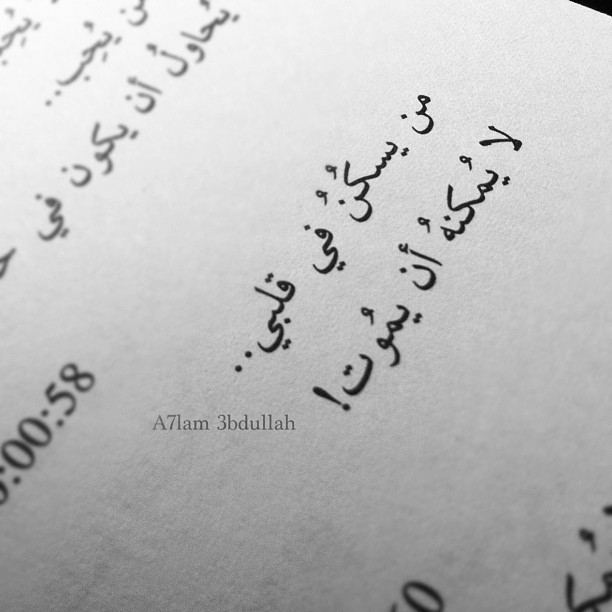 يُحِب..
يُحاولُ أن يكون في
من يسكنُ في قلبي..
لا يُمكنهُ أن يمُوت!
:00:58
A7lam 3bdullah